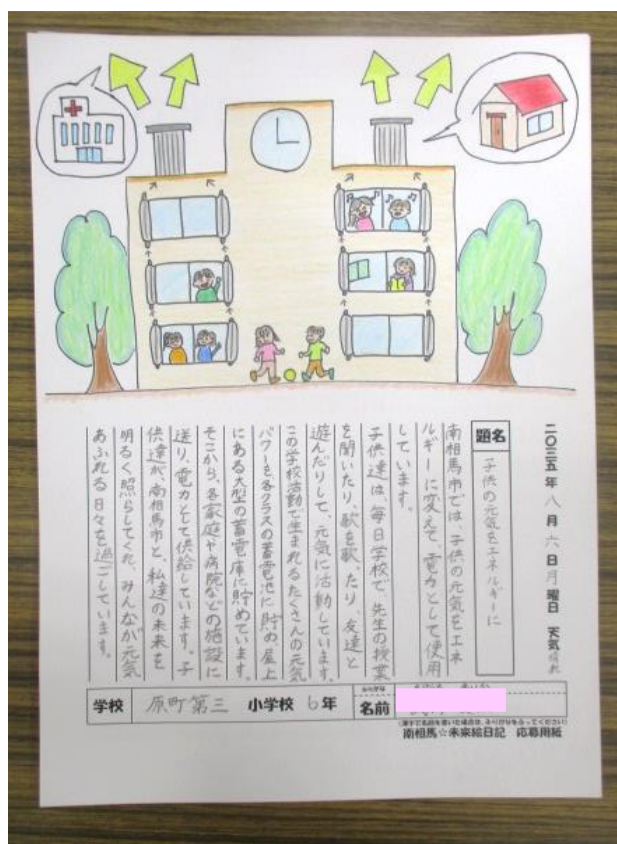 二〇三五年 八月 六日 月曜日 天気 晴れ
題名 子供の元気をエネルギーに
南相馬市では、子供の元気をエネ
ルギーに変えて、電力として使用
しています。
子供達は、毎日学校で、先生の授業
を聞いたり、歌を歌ったり、友達と
遊んだりして、元気に活動しています。
この学校活動で生まれるたくさんの元気
パワーを各クラスの蓄電池に貯め、屋上
にある大型の蓄電庫に貯めています。
そこから、各家庭や病院などの施設に
送り、電力として供給しています。子
供達が、南相馬市と、私達の未来を
明るく照らしてくれ、みんなが元気
あふれる日々を過ごしています。
学校 原町第三 小学校 6年 ふりがな 名前
(漢字で名前を書いた場合は、ふりがなをふってください)
南相馬☆未来絵日記 応募用紙